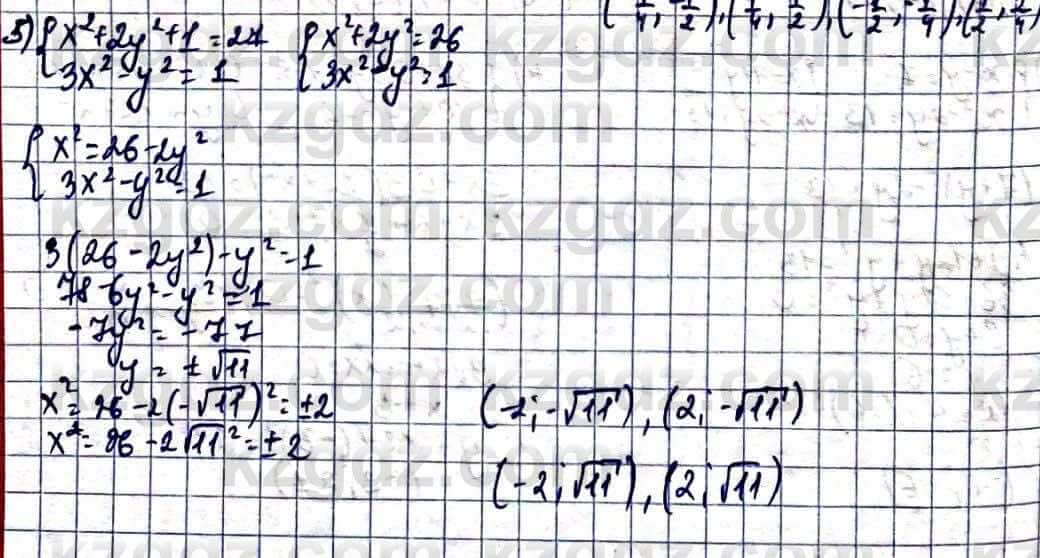 (1/4, -1/2), (1/4, 1/2), (-1/2, -1/4), (1/2, 1/4)
5) { x²+2y²+1=27   { x²+2y²=26
3x²-y²=1   3x²-y²=1
{ x²=26-2y²
3x²-y²=1
3(26-2y²)-y²=1
78-6y²-y²=1
-7y²=-77
y=±√11
x²=26-2(-√11)²=±2   (-2;-√11), (2;-√11)
x²=26-2√11²=±2
(-2;√11), (2;√11)
kzgdz.com